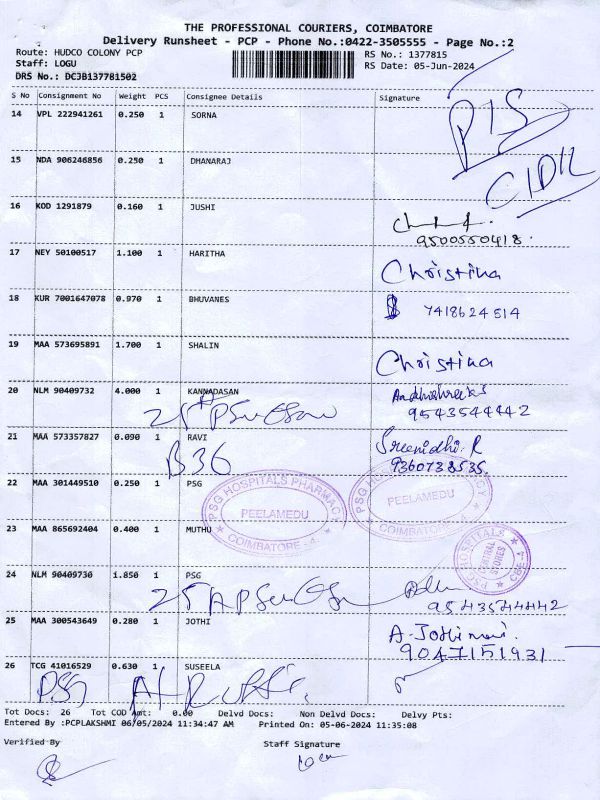 THE PROFESSIONAL COURIERS, COIMBATORE
Delivery Runsheet - PCP - Phone No.:0422-3505555 - Page No.:2
Route: HUDCO COLONY PCP
RS No.: 1377815
Staff: LOGU
RS Date: 05-Jun-2024
DRS No.: DCJB137781502
S No Consignment No Weight PCS Consignee Details Signature
14 VPL 222941261 0.250 1 SORNA
15 NDA 906246856 0.250 1 DHANARAJ
16 KOD 1291879 0.160 1 JUSHI
9500550418.
17 NEY 50100517 1.100 1 HARITHA
Christina
18 KUR 7001647078 0.970 1 BHUVANES
7418624514
19 MAA 573695891 1.700 1 SHALIN
Christina
20 NLM 90409732 4.000 1 KANNADASAN
9543544442
21 MAA 573357827 0.090 1 RAVI
Sreenidhi. R
B36
9360738535.
22 MAA 301449510 0.250 1 PSG
PSG HOSPITALS PHARMACY
PEELAMEDU
COIMBATORE - 4.
PSG HOSPITALS PHARMACY
PEELAMEDU
COIMBATORE - 4.
23 MAA 865692404 0.400 1 MUTHU
PSG HOSPITALS
CENTRAL
STORES
CBE-4
24 NLM 90409730 1.850 1 PSG
9543544442
25 MAA 300543649 0.280 1 JOTHI
A. Jothimani.
9047151931
26 TCG 41016529 0.630 1 SUSEELA
PSG
Tot Docs: 26 Tot COD Amt: 0.00 Delvd Docs: Non Delvd Docs: Delvy Pts:
Entered By :PCPLAKSHMI 06/05/2024 11:34:47 AM Printed On: 05-06-2024 11:35:08
Verified By
Staff Signature